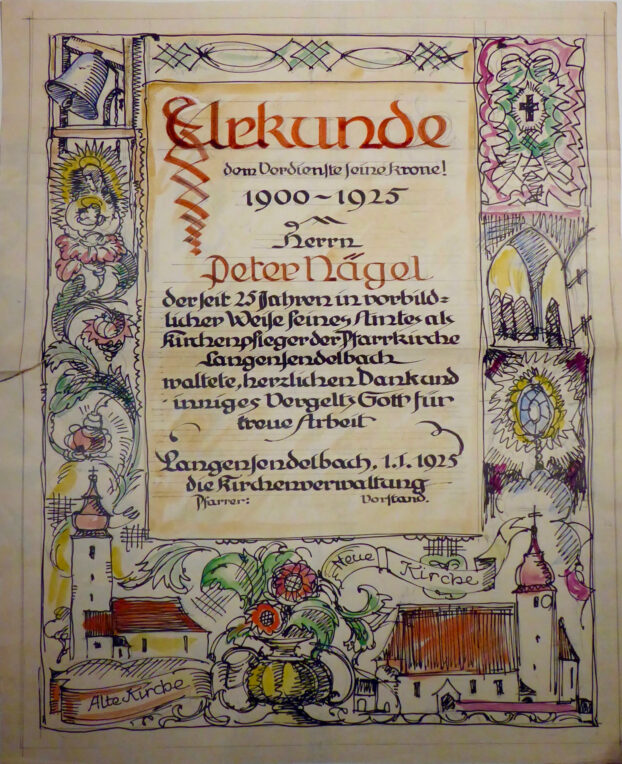 Urkunde
dem Verdienste seine Krone!
1900~1925
Herrn
Peter Nägel
der seit 25 Jahren in vorbild=
licher Weise seines Amtes als
Kirchenpfleger der Pfarrkirche
Langensendelbach
waltete, herzlichen Dank und
inniges Vergelts Gott für
treue Arbeit
Langensendelbach, 1.1.1925
die Kirchenverwaltung
Pfarrer: Vorstand.
Neue Kirche
Alte Kirche